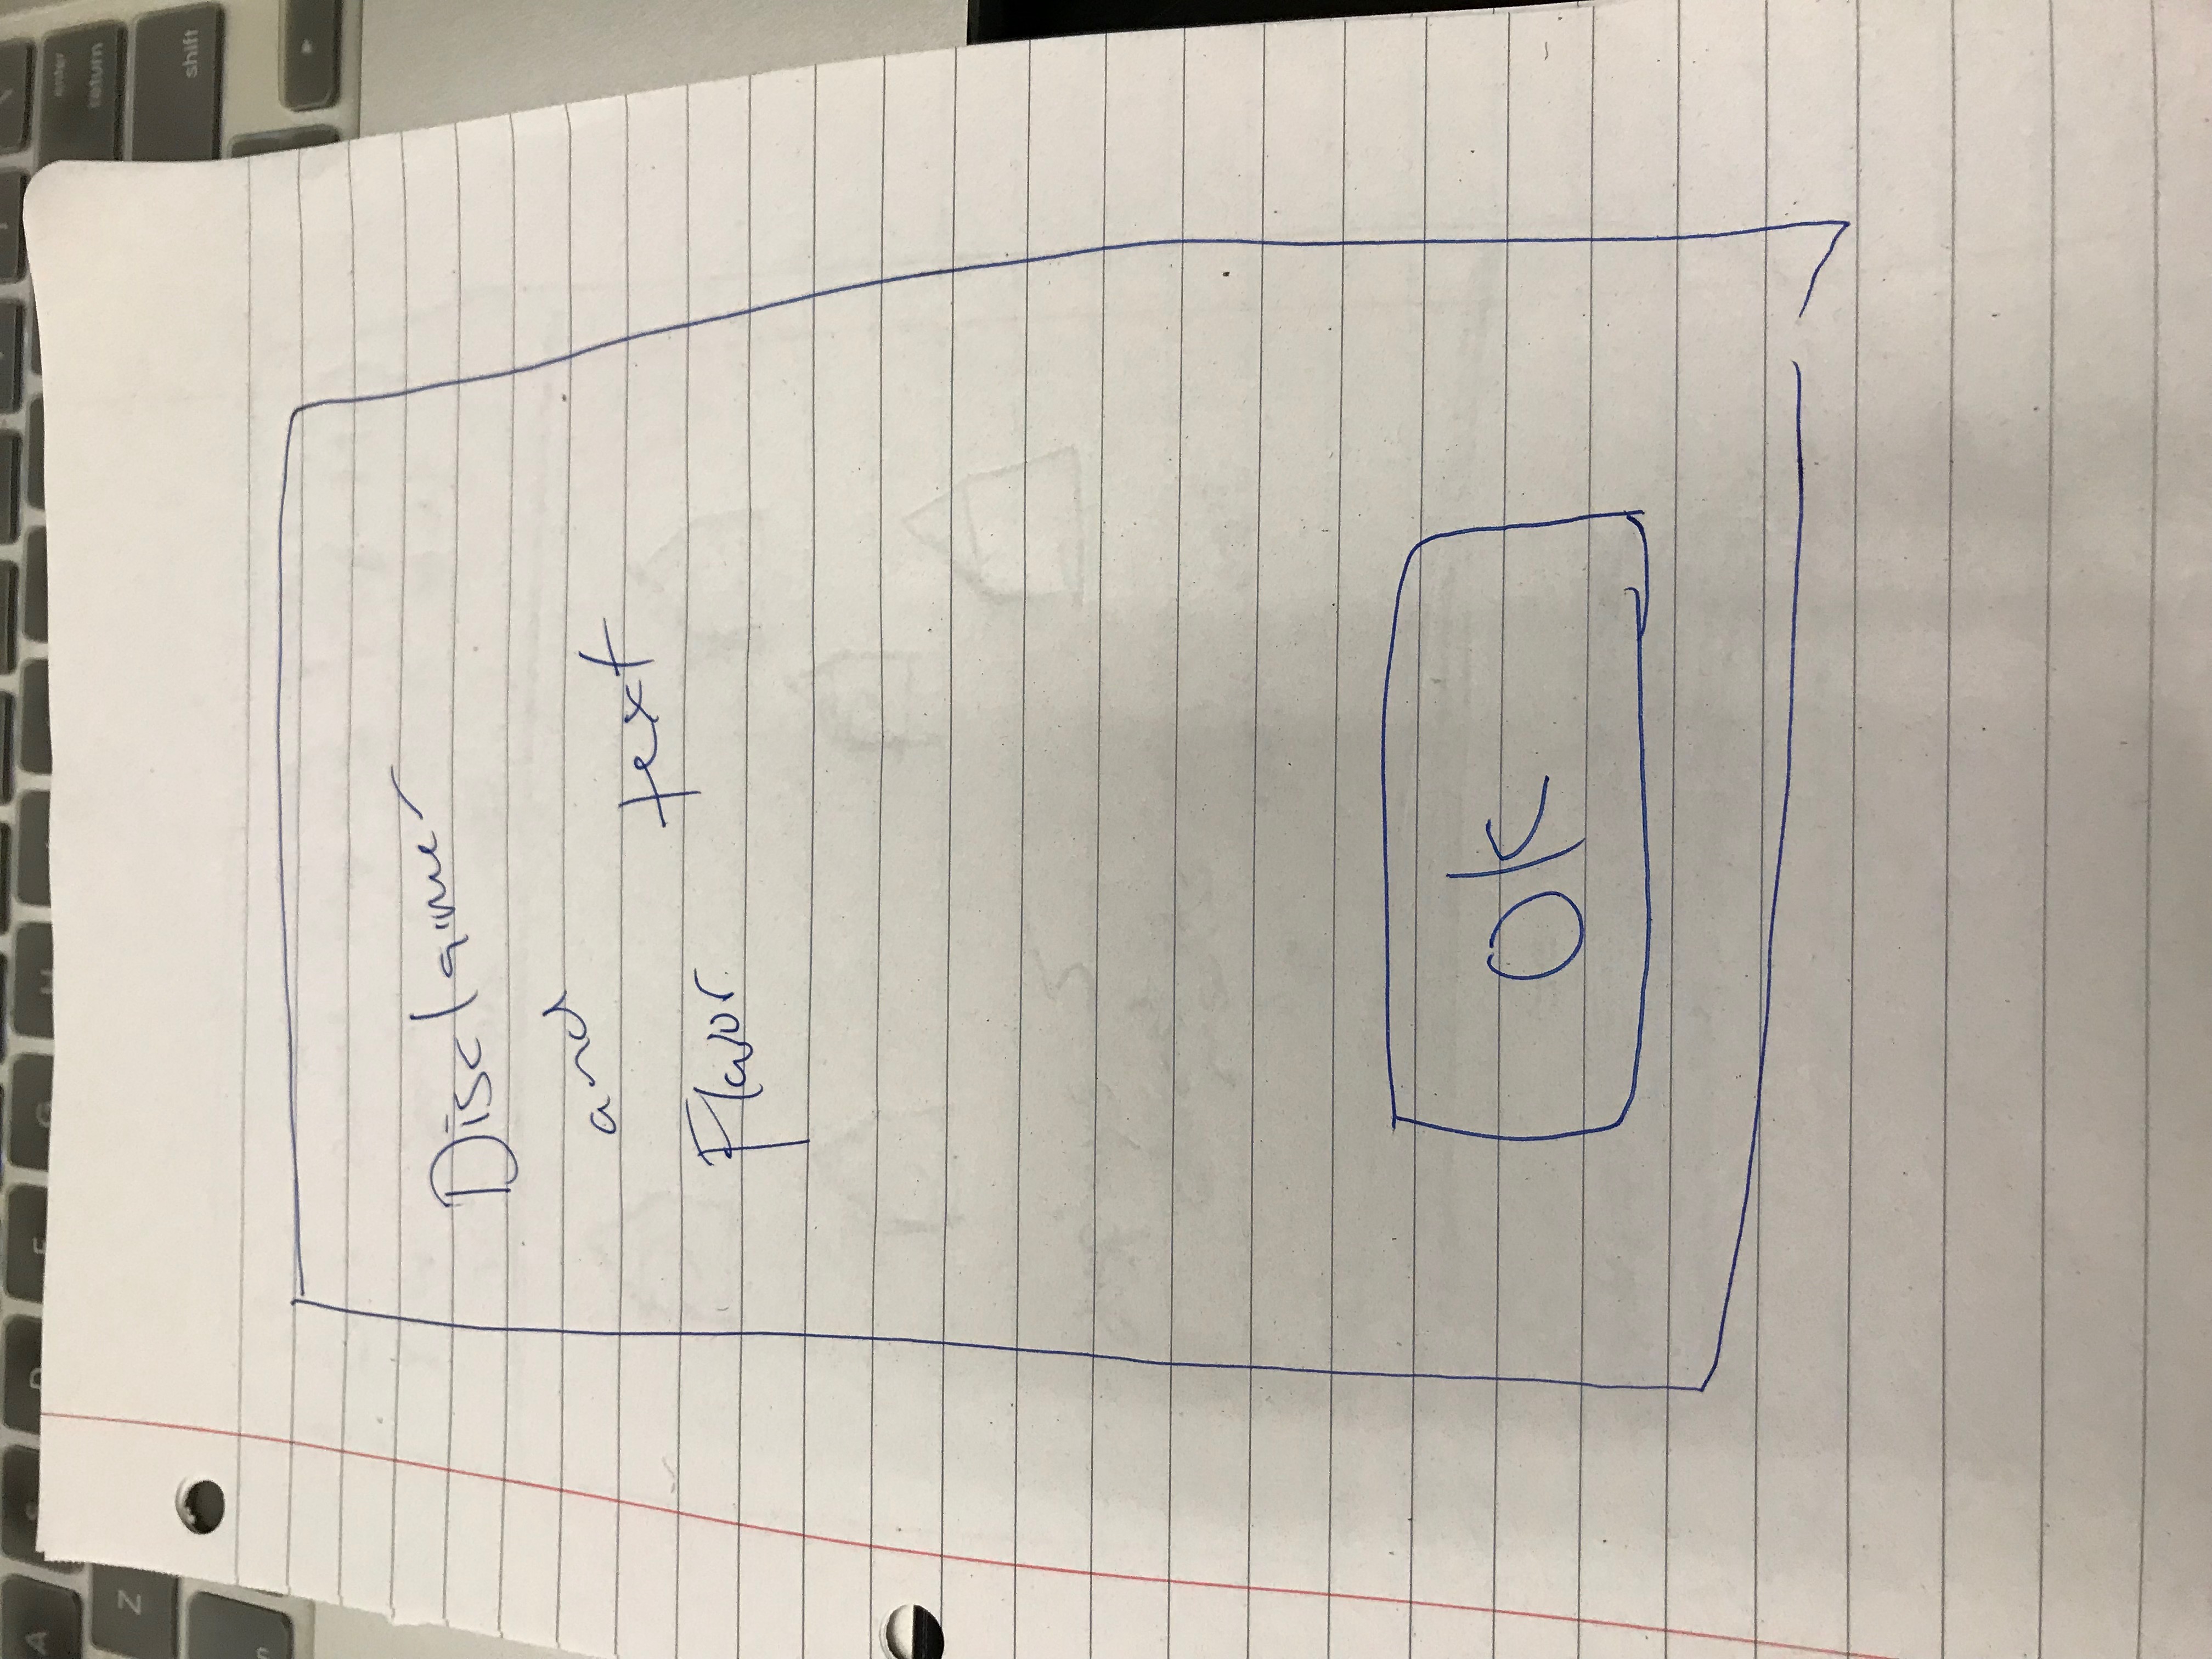 A S D F G H
enter
return
Z
shift
Disclaimer
and
Flavor text
OK